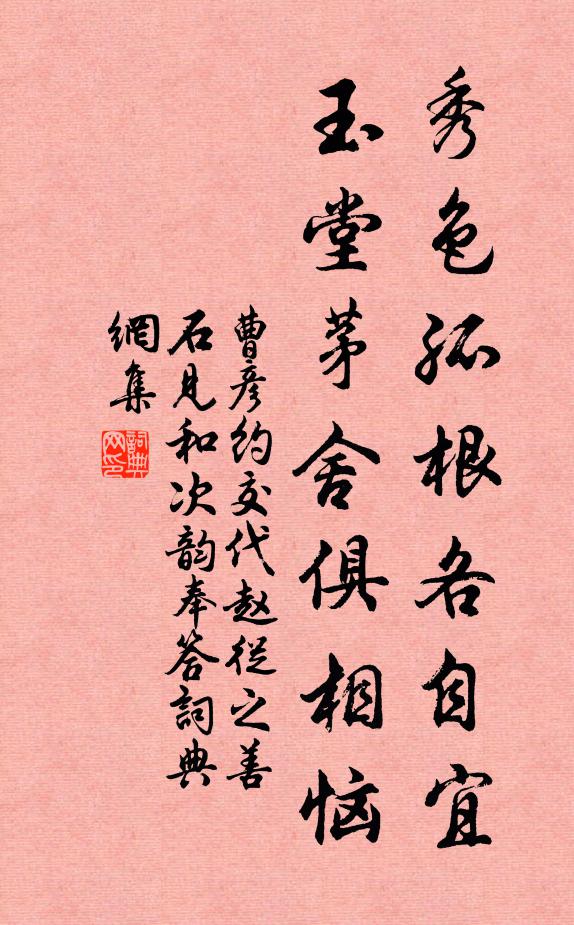 秀色孤根各自宜
玉堂茅舍俱相恼
曹彦约交代赵从之善
石见和次韵奉答詞典
網集
詞典
网印